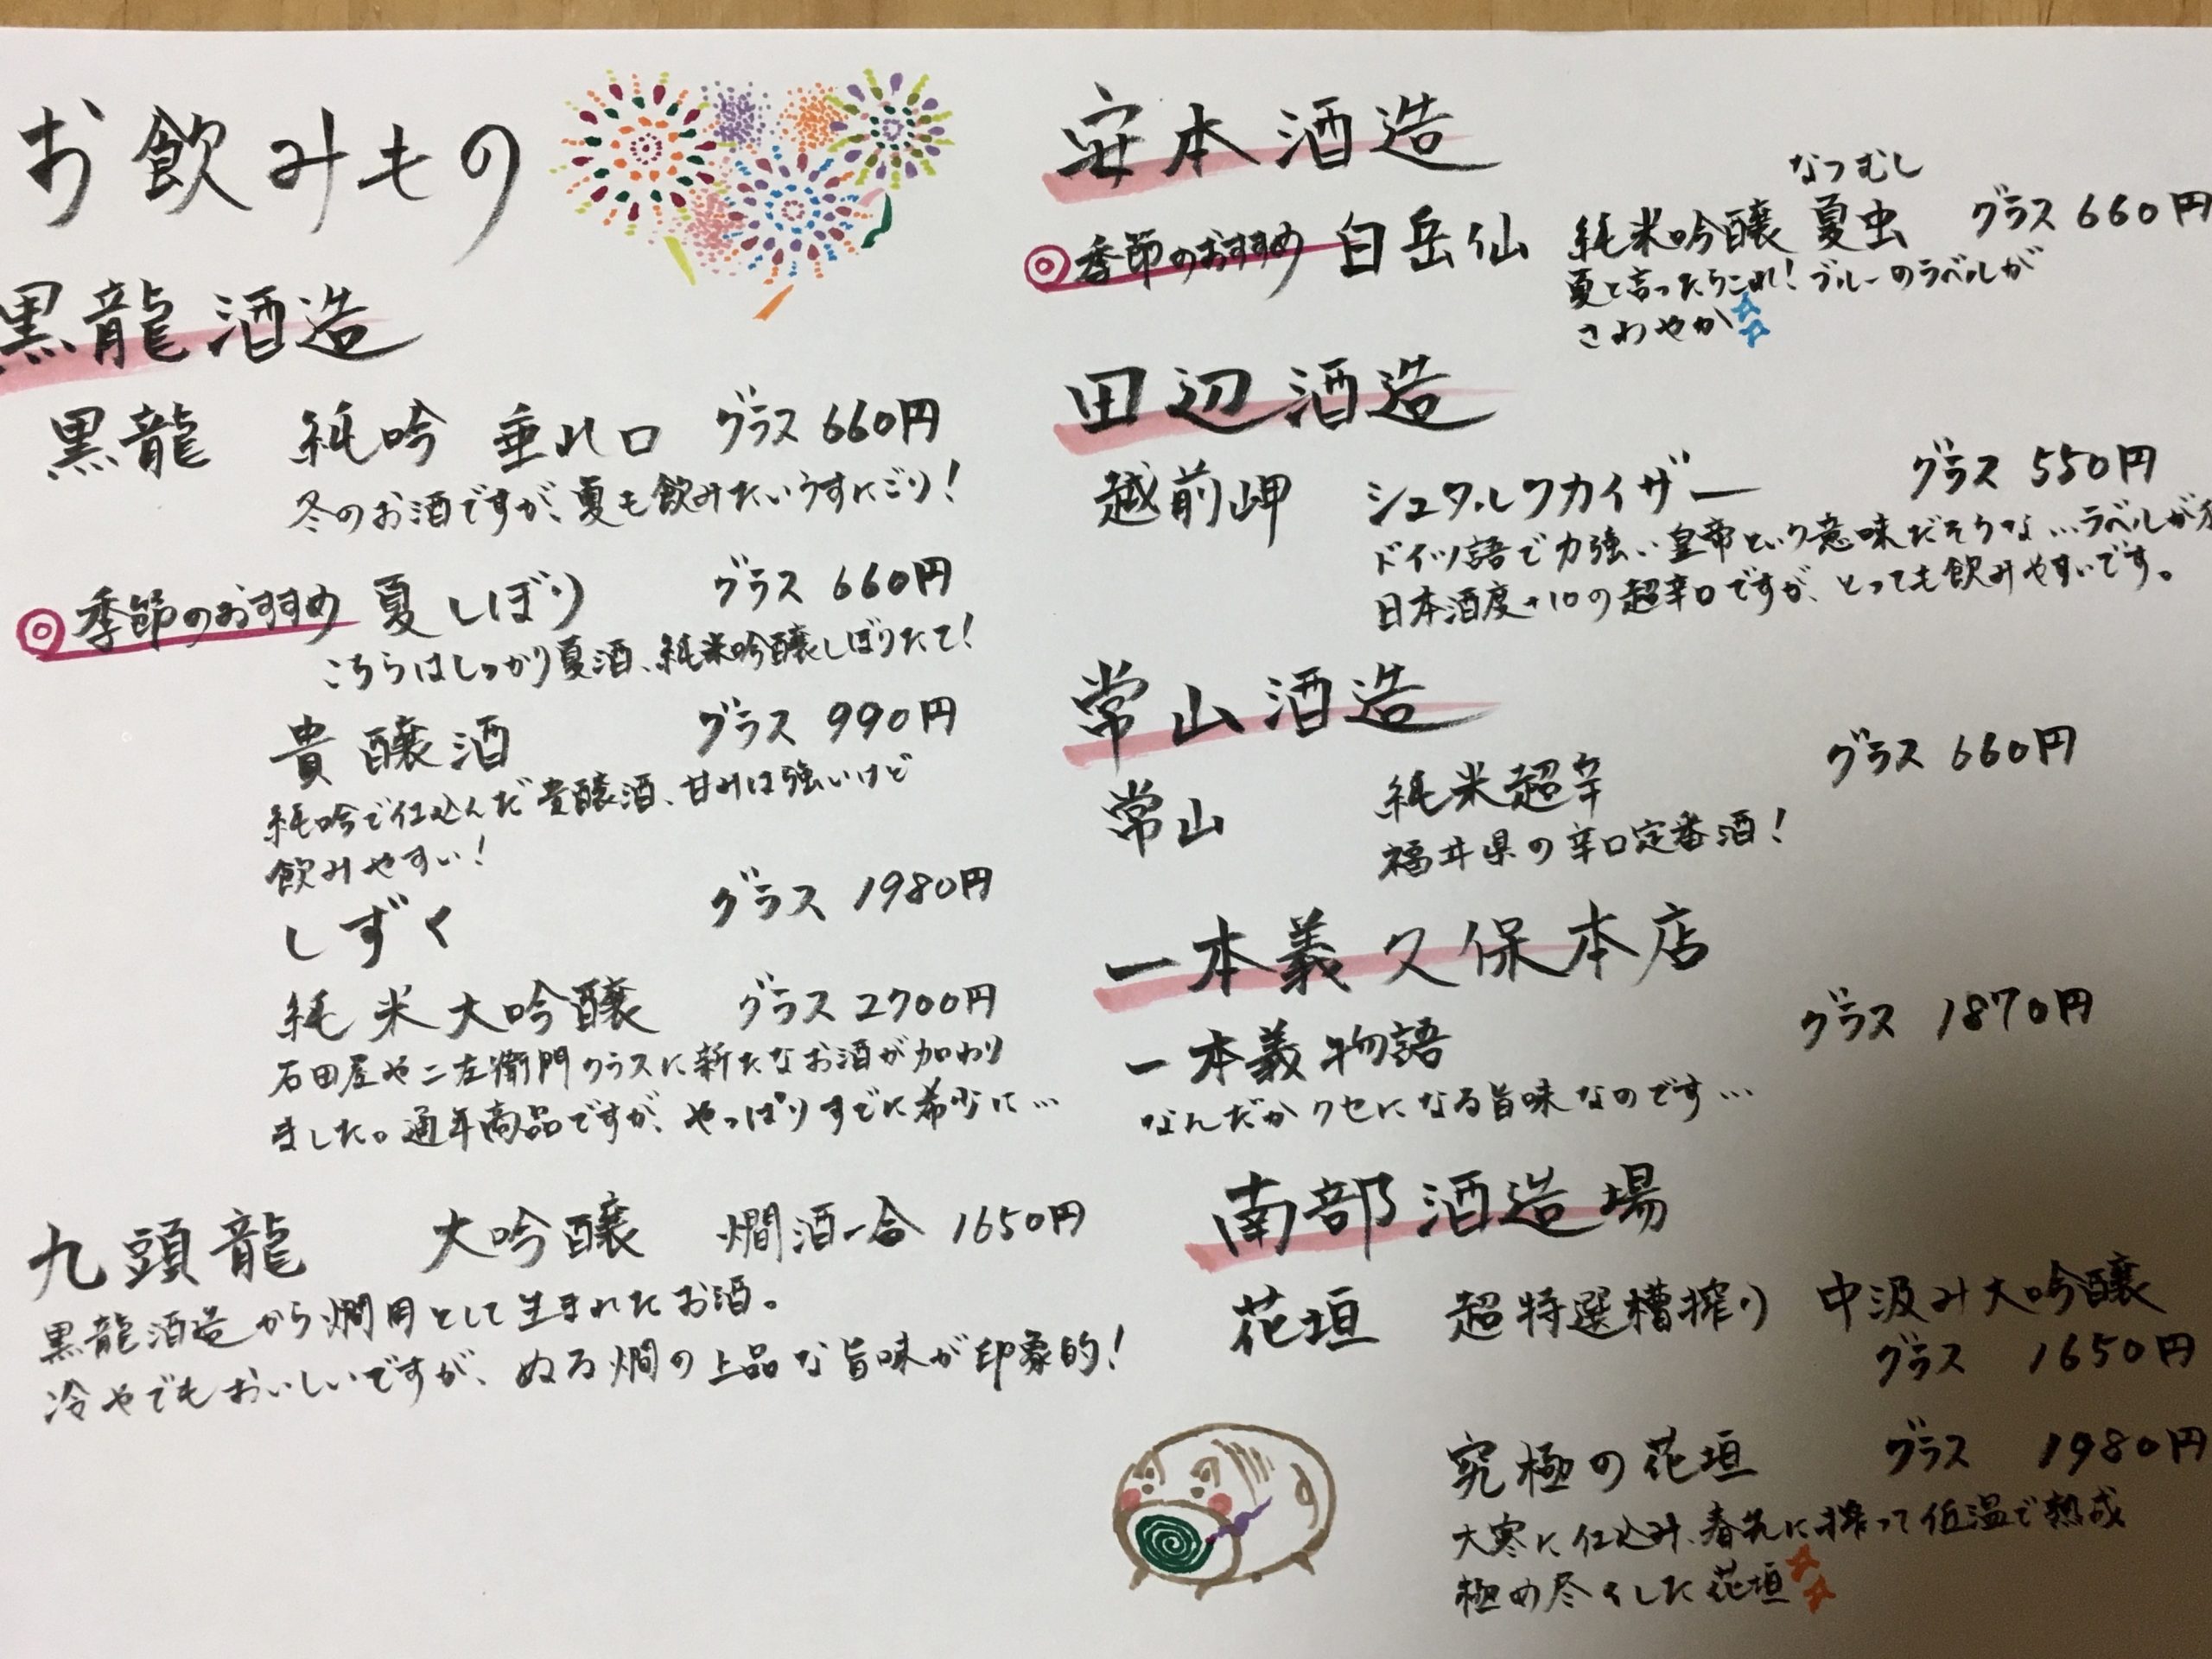 お飲みもの
黒龍酒造
黒龍 純吟 垂れ口 グラス 660円
冬のお酒ですが、夏も飲みたいうすにごり!
◎季節のおすすめ 夏しぼり グラス 660円
こちらはしっかり夏酒、純米吟醸しぼりたて!
貴醸酒 グラス 990円
純吟で仕込んだ貴醸酒、甘みは強いけど
飲みやすい!
しずく グラス 1980円
純米大吟醸 グラス 2700円
石田屋や二左衛門クラスに新たなお酒が加わり
ました。通年商品ですが、やっぱりすでに希少に…
九頭龍 大吟醸 燗酒一合 1650円
黒龍酒造から燗用として生まれたお酒。
冷やでもおいしいですが、ぬる燗の上品な旨味が印象的!
安本酒造
なつむし
◎季節のおすすめ 白岳仙 純米吟醸 夏虫 グラス 660円
夏と言ったらこれ!ブルーのラベルが
さわやか
田辺酒造
越前岬 シュタルクカイザー グラス 550円
ドイツ語で力強い皇帝という意味だそうな…ラベルが
日本酒度+10の超辛口ですが、とっても飲みやすいです。
常山酒造
常山 純米超辛 グラス 660円
福井県の辛口定番酒!
一本義久保本店
一本義物語 グラス 1870円
なんだかクセになる旨味なのです…
南部酒造場
花垣 超特選槽搾り 中汲み大吟醸
グラス 1650円
究極の花垣 グラス 1980円
大寒に仕込み、春先に搾って低温で熟成
極め尽くした花垣